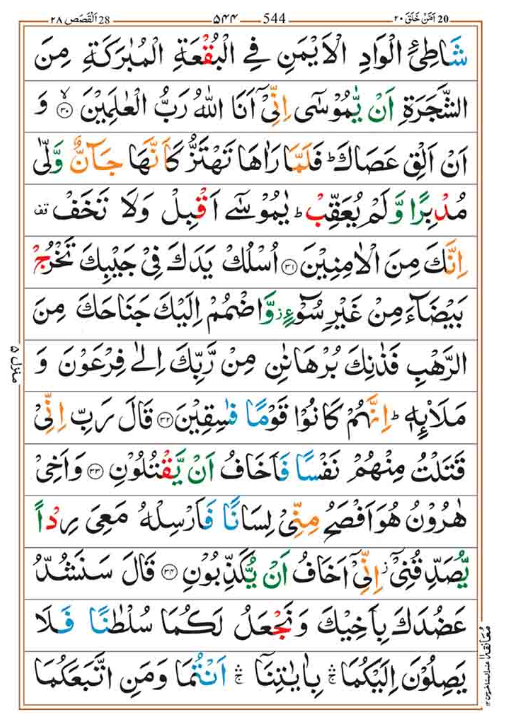 20 اَمَّنْ خَلَقَ ٢٠ ۵۴۴ 544 28 اَلْقَصَص ٢٨
شَاطِیِٔ الْوَادِ الْاَیْمَنِ فِی الْبُقْعَةِ الْمُبٰرَكَةِ مِنَ
الشَّجَرَةِ اَنْ یّٰمُوْسٰۤی اِنِّیْۤ اَنَا اللّٰهُ رَبُّ الْعٰلَمِیْنَۙ ۳۰ وَ
اَنْ اَلْقِ عَصَاكَ ؕ فَلَمَّا رَاٰهَا تَهْتَزُّ كَاَنَّهَا جَآنٌّ وَّلّٰی
مُدْبِرًا وَّ لَمْ یُعَقِّبْ ؕ یٰمُوْسٰۤی اَقْبِلْ وَلَا تَخَفْ قف
اِنَّكَ مِنَ الْاٰمِنِیْنَ ۳۱ اُسْلُكْ یَدَكَ فِیْ جَیْبِكَ تَخْرُجْ
بَیْضَآءَ مِنْ غَیْرِ سُوْٓءٍ ؗ وَّاضْمُمْ اِلَیْكَ جَنَاحَكَ مِنَ
الرَّهْبِ فَذٰنِكَ بُرْهَانٰنِ مِنْ رَّبِّكَ اِلٰی فِرْعَوْنَ وَ
مَلَاۡئِهٖ ؕ اِنَّهُمْ كَانُوْا قَوْمًا فٰسِقِیْنَ ۳۲ قَالَ رَبِّ اِنِّیْ
قَتَلْتُ مِنْهُمْ نَفْسًا فَاَخَافُ اَنْ یَّقْتُلُوْنِ ۳۳ وَاَخِیْ
هٰرُوْنُ هُوَ اَفْصَحُ مِنِّیْ لِسَانًا فَاَرْسِلْهُ مَعِیَ رِدْاً
یُّصَدِّقُنِیْۤ ؗ اِنِّیْۤ اَخَافُ اَنْ یُّكَذِّبُوْنِ ۳۴ قَالَ سَنَشُدُّ
عَضُدَكَ بِاَخِیْكَ وَنَجْعَلُ لَكُمَا سُلْطٰنًا فَلَا
یَصِلُوْنَ اِلَیْكُمَا ۛۚ بِاٰیٰتِنَاۤ ۛۚ اَنْتُمَا وَمَنِ اتَّبَعَكُمَا
منزل ۵